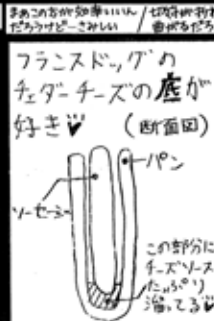 まあこの方が効率いいん
だろうけど…さみしい
フランスドッグの
チェダーチーズの底が
好き♥
(断面図)
パン
ソーセージ
この部分に
チーズソース
たっぷり
溜ってる♥